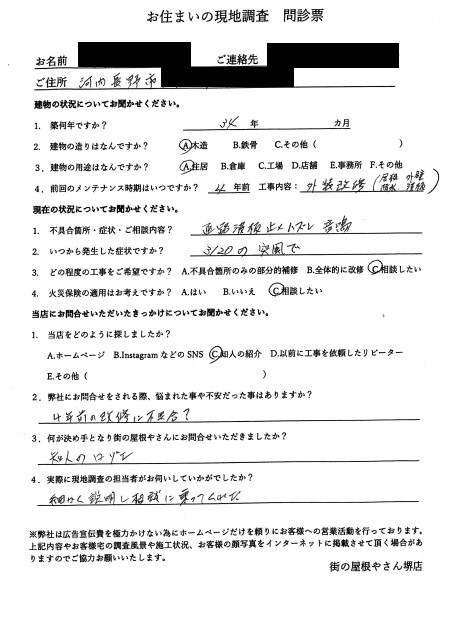 お住まいの現地調査 問診票
お名前 ご連絡先
ご住所 河内長野市
建物の状況についてお聞かせください。
1. 築何年ですか? 34 年 カ月
2. 建物の造りはなんですか? A.木造 B.鉄骨 C.その他( )
3. 建物の用途はなんですか? A.住居 B.倉庫 C.工場 D.店舗 E.事務所 F.その他
4. 前回のメンテナンス時期はいつですか? 4 年前 工事内容: 外装改修 (屋根 外壁
現在の状況についてお聞かせください。
1. 不具合箇所・症状・ご相談内容? 止メトズレ 音鳴
2. いつから発生した症状ですか? 3/20の突風で
3. どの程度の工事をご希望ですか? A.不具合箇所のみの部分的補修 B.全体的に改修 C.相談したい
4. 火災保険の適用はお考えですか? A.はい B.いいえ C.相談したい
当店にお問合せいただいたきっかけについてお聞かせください。
1. 当店をどのように探しましたか?
A.ホームページ B.InstagramなどのSNS C.知人の紹介 D.以前に工事を依頼したリピーター
E.その他( )
2. 弊社にお問合せをされる際、悩まれた事や不安だった事はありますか?
4年前の改修に不具合?
3. 何が決め手となり街の屋根やさんにお問合せいただきましたか?
知人の
4. 実際に現地調査の担当者がお伺いしていかがでしたか?
細かく説明し相談に乗ってくれた
※弊社は広告宣伝費を極力かけない為にホームページだけを頼りにお客様への営業活動を行っております。
上記内容やお客様宅の調査風景や施工状況、お客様の顔写真をインターネットに掲載させて頂く場合があ
りますのでご協力お願いいたします。
街の屋根やさん堺店